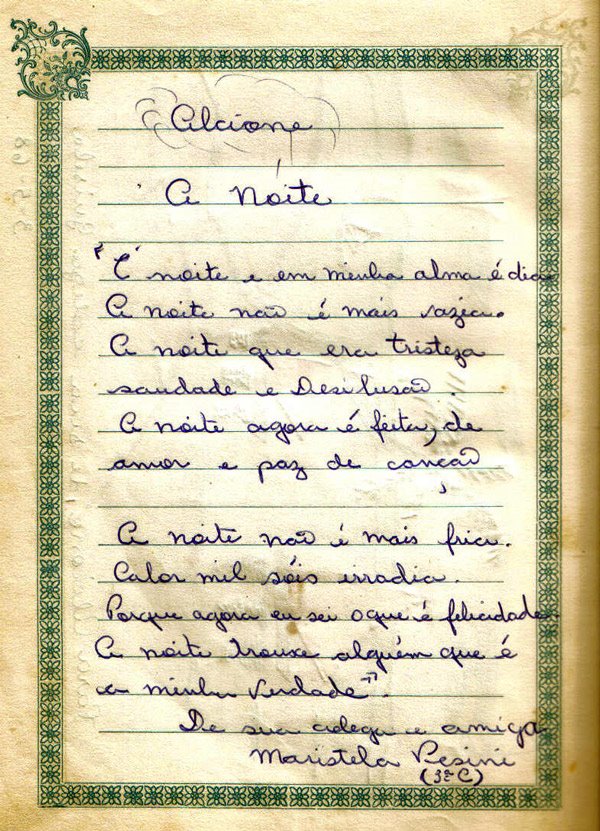 Alcione
A Noite
"É noite e em minha alma é dia
A noite não é mais vazia.
A noite que era tristeza
saudade e Desilusão.
A noite agora é feita, de
amor e paz de canção
A noite não é mais fria.
Calor mil sóis irradia.
Porque agora eu sei o que é felicidade
A noite trouxe alguém que é
a minha verdade".
De sua colega e amiga
Maristela Pesini
(3ª C)
3.5.68